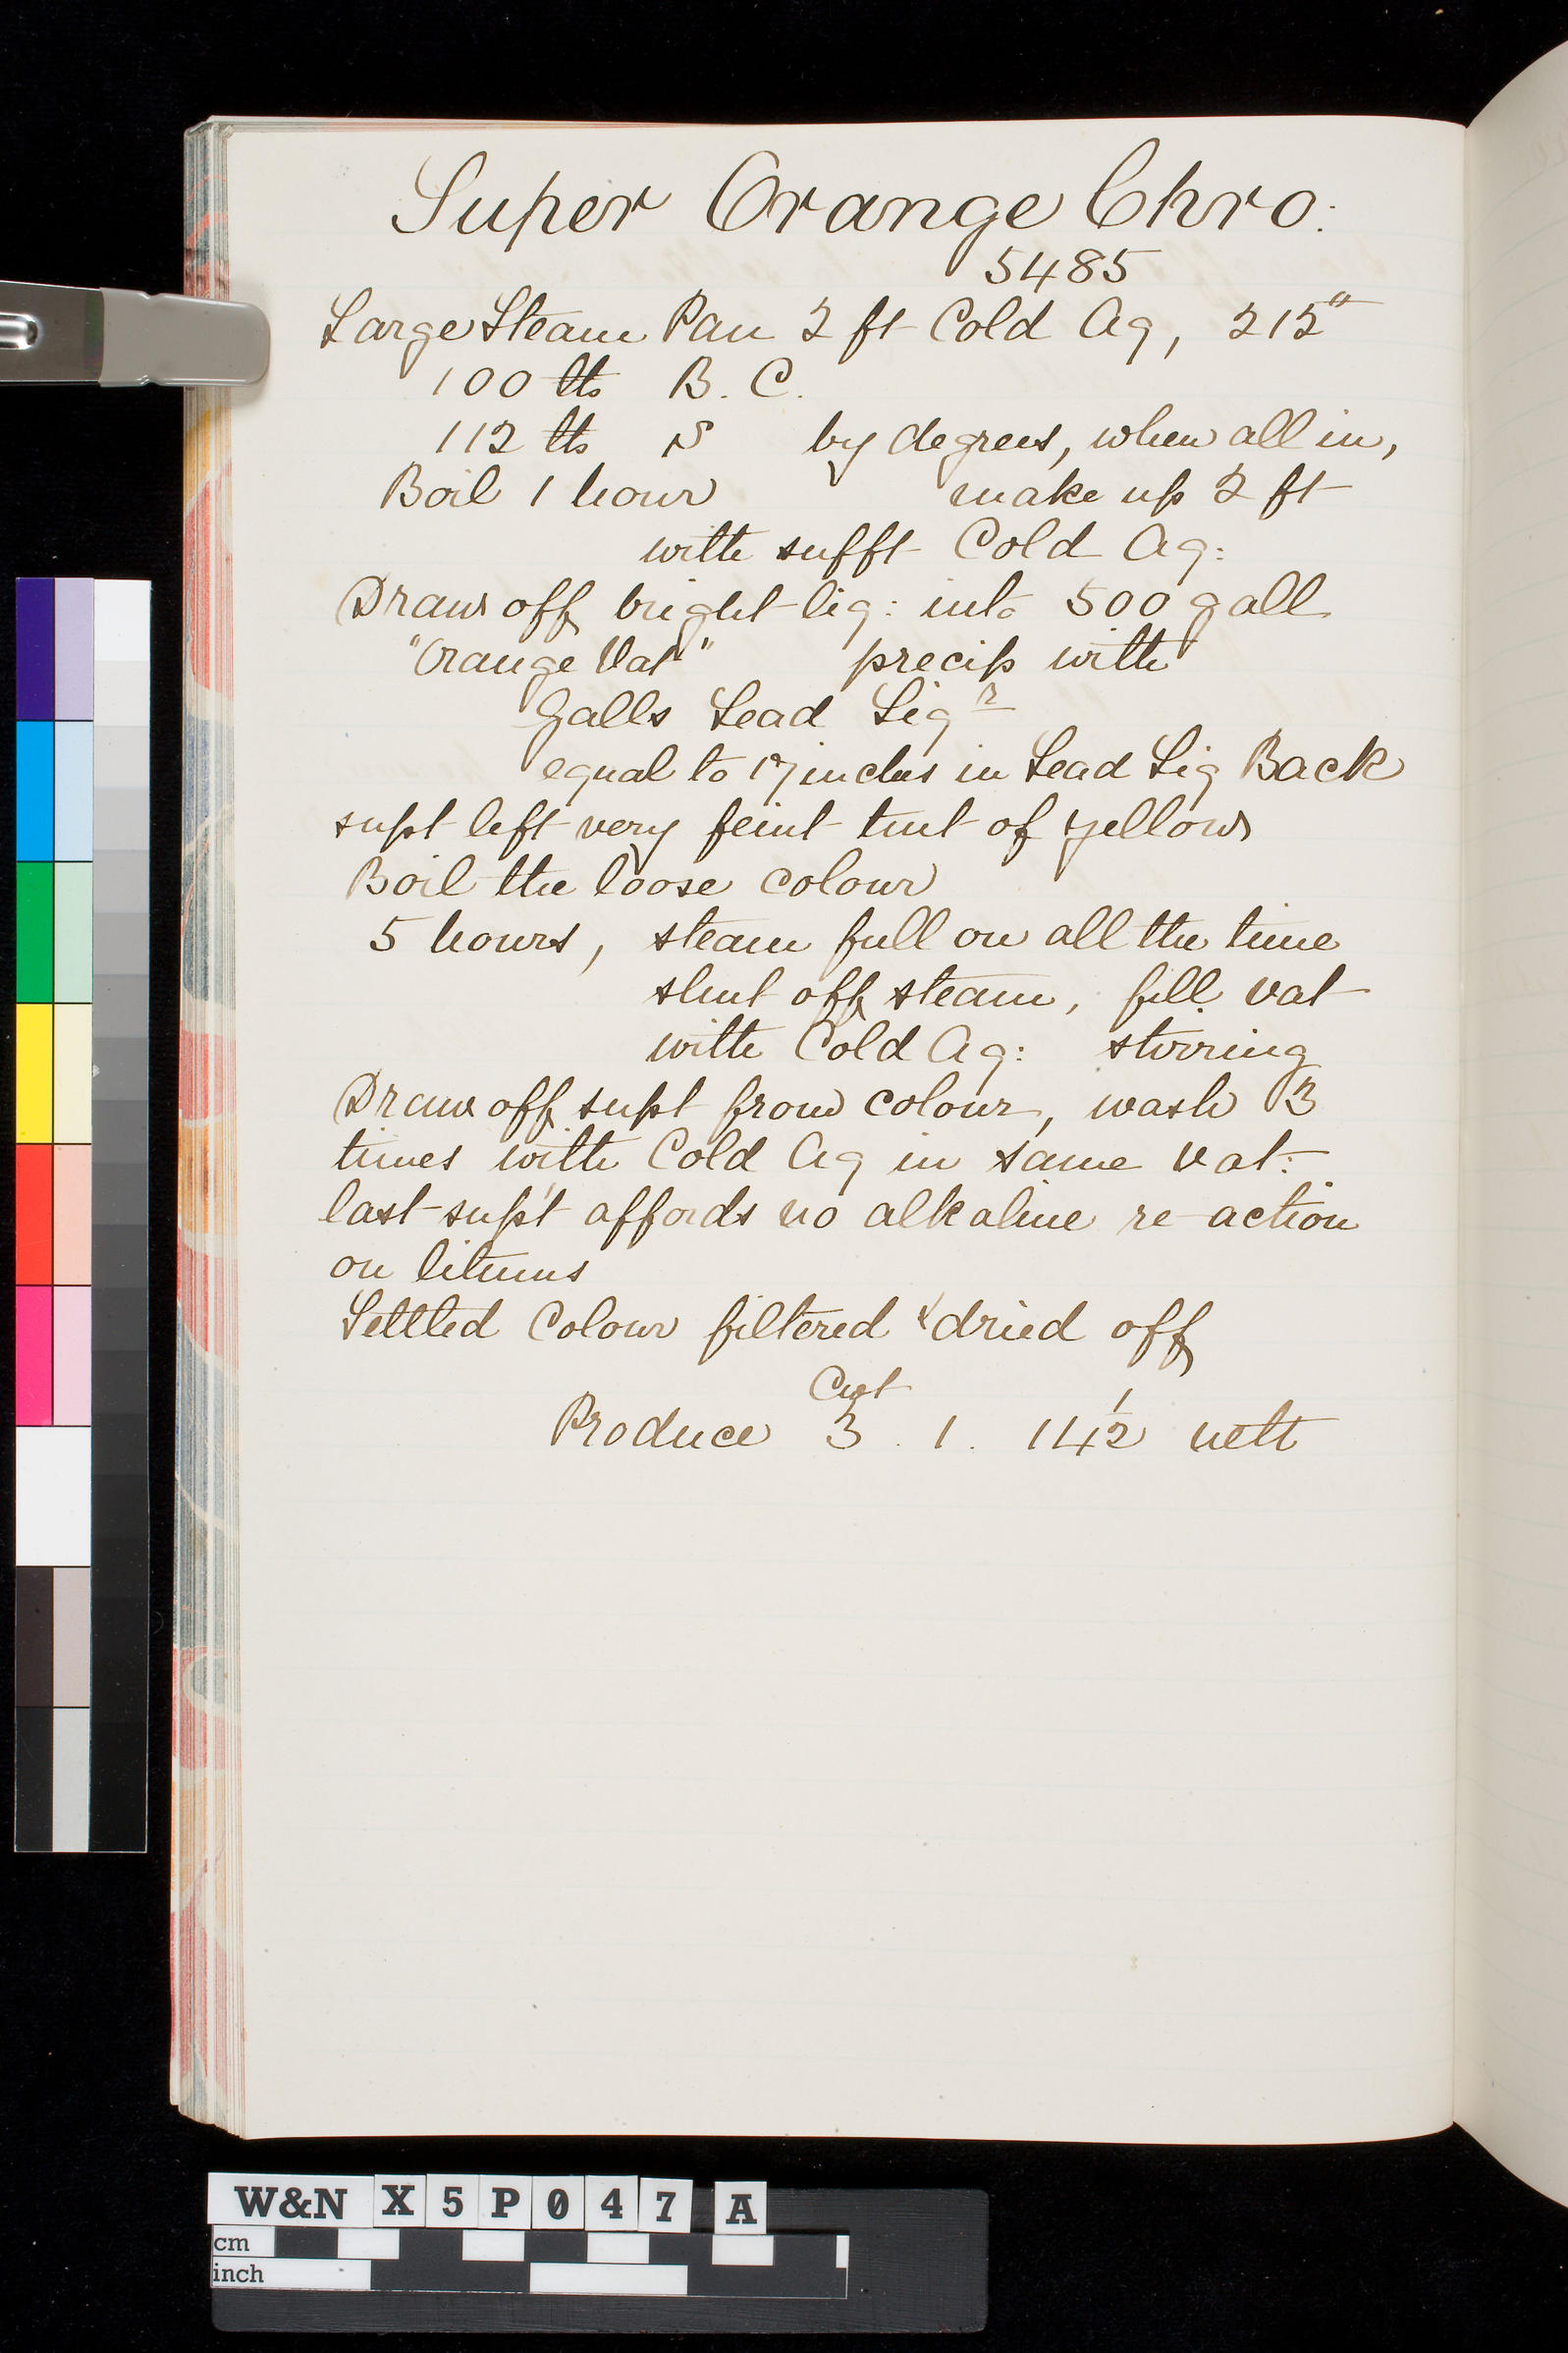 Super Orange Chro:
5485
Large Steam Pan 2 ft Cold Aq, 212°
100 lbs B. C.
112 lbs S by degrees, when all in,
Boil 1 hour make up 2 ft
with sufft Cold Aq:
Draw off bright liq: into 500 gall
"Orange Vat" precip with
Galls Lead Liqr
equal to 17 inches in Lead Liq Back
supt left very feint tint of yellow
Boil the loose colour
5 hours, steam full on all the time
shut off steam, fill vat
with Cold Aq: stirring
Draw off supt from colour, wash 3
times with Cold Aq in same vat:
last sup't affords no alkaline re-action
on litmus
Settled Colour filtered & dried off
Cwt
Produce 3 . 1 . 14 1/2 nett
W&N X5P047 A
cm
inch